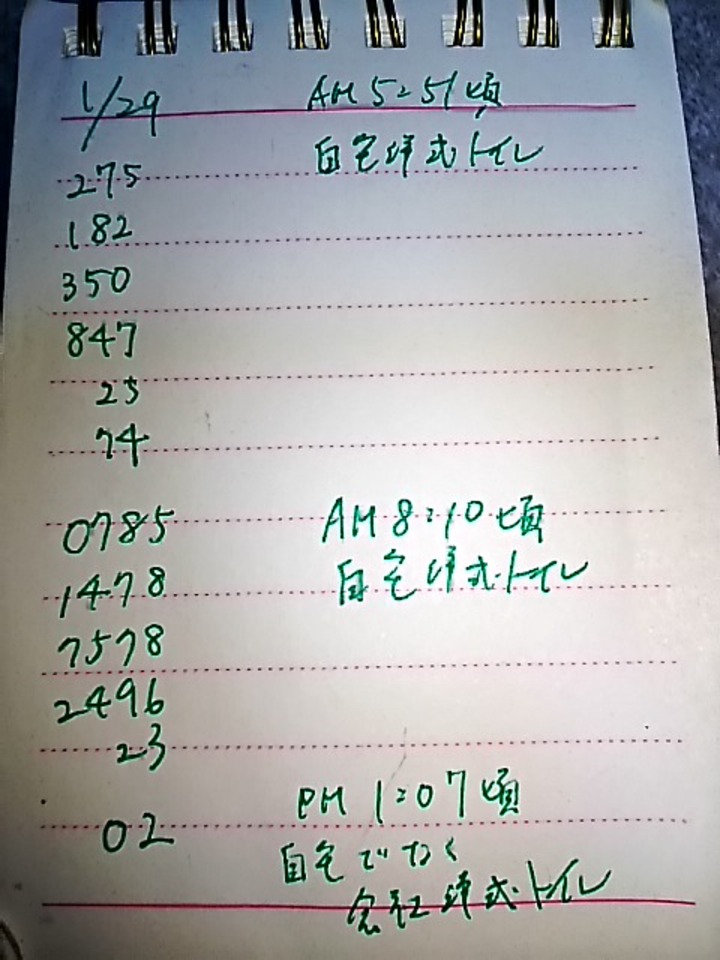 1/29 AM 5:51頃
275 自宅洋式トイレ
182
350
847
25
74
0785 AM 8:10頃
1478 自宅洋式トイレ
7578
2496
23
PM 1:07頃
02 自宅でなく
会社洋式トイレ